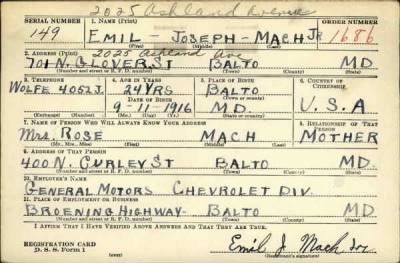 2025 Ashland Avenue
SERIAL NUMBER 1. NAME (Print) ORDER NUMBER
149 EMIL - JOSEPH - MACH JR 1686
(First) (Middle) (Last)
2. ADDRESS (Print) 2025 Ashland Ave
701 N. GLOVER. ST BALTO MD.
(Number and street or R. F. D. number) (Town) (County) (State)
3. TELEPHONE 4. AGE IN YEARS 5. PLACE OF BIRTH 6. COUNTRY OF CITIZENSHIP
WOLFE 4052 J. 24 YRS BALTO
DATE OF BIRTH (Town or county)
9-11-1916 MD. U.S.A
(Exchange) (Number) (Mo.) (Day) (Yr.) (State or country)
7. NAME OF PERSON WHO WILL ALWAYS KNOW YOUR ADDRESS 8. RELATIONSHIP OF THAT PERSON
Mrs. ROSE MACH MOTHER
(Mr., Mrs., Miss) (First) (Middle) (Last)
9. ADDRESS OF THAT PERSON
400 N. CURLEY ST BALTO MD.
(Number and street or R. F. D. number) (Town) (County) (State)
10. EMPLOYER'S NAME
GENERAL MOTORS CHEVROLET DIV.
11. PLACE OF EMPLOYMENT OR BUSINESS
BROENING HIGHWAY- BALTO MD.
(Number and street or R. F. D. number) (Town) (County) (State)
I AFFIRM THAT I HAVE VERIFIED ABOVE ANSWERS AND THAT THEY ARE TRUE.
REGISTRATION CARD
D. S. S. Form 1 Emil J Mach Jr
(Registrant's signature)